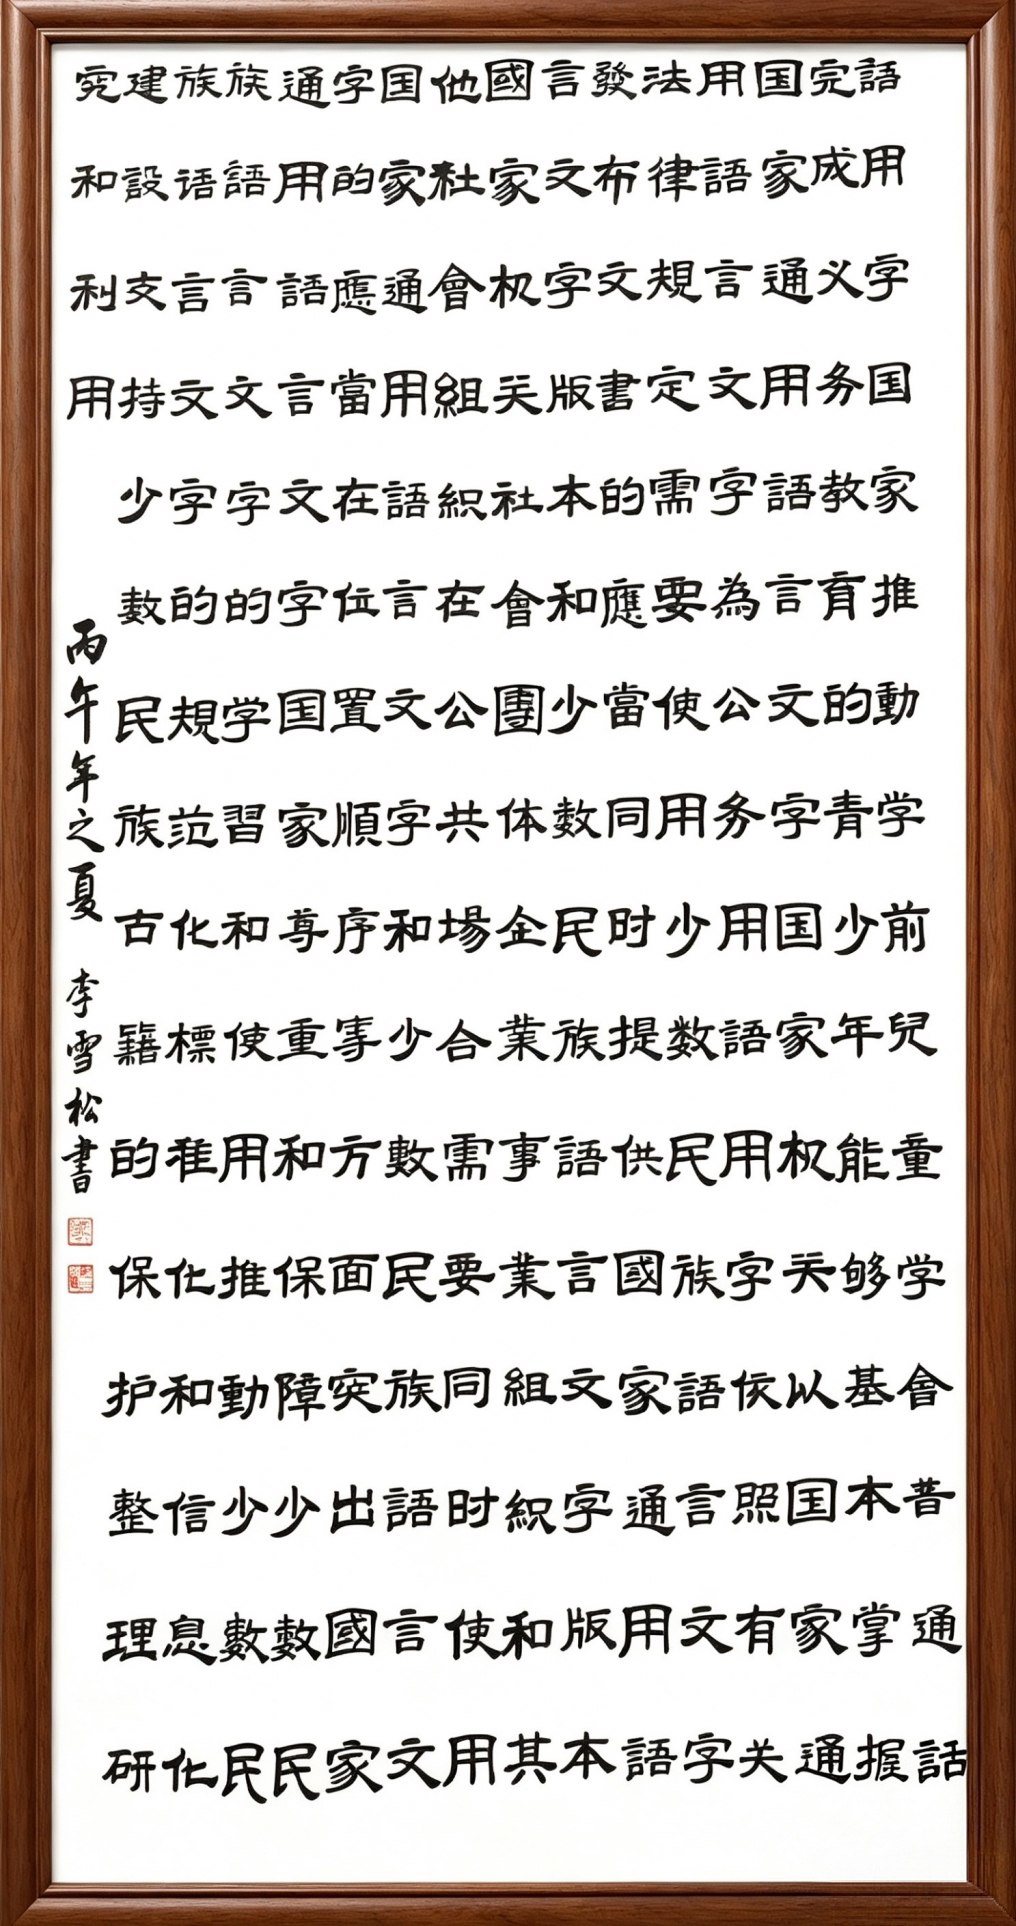 語用字国家推動学前兒童学會普通話
完成义务教育的青少年能够基本掌握
国家通用語言文字国家机关以国家通
用語言文字為公务用語用字依照有关
法律規定需要使用少数民族語言文字
發布文書的應當同时提供國家通用語
言文字版本和少数民族語言文字版本
國家机关社會團体企業事業組織和其
他社會組織在公共場合需要同时使用
国家通用語言文字和少數民族語言文
字的應當在位置順序等方面突出國家
通用語言文字国家尊重和保障少數民
族語言文字的学習和使用推動少數民
族语言文字的規范化標准化和信息化
建設支持少数民族古籍的保护整理研
究和利用
丙午年之夏 李雪松書